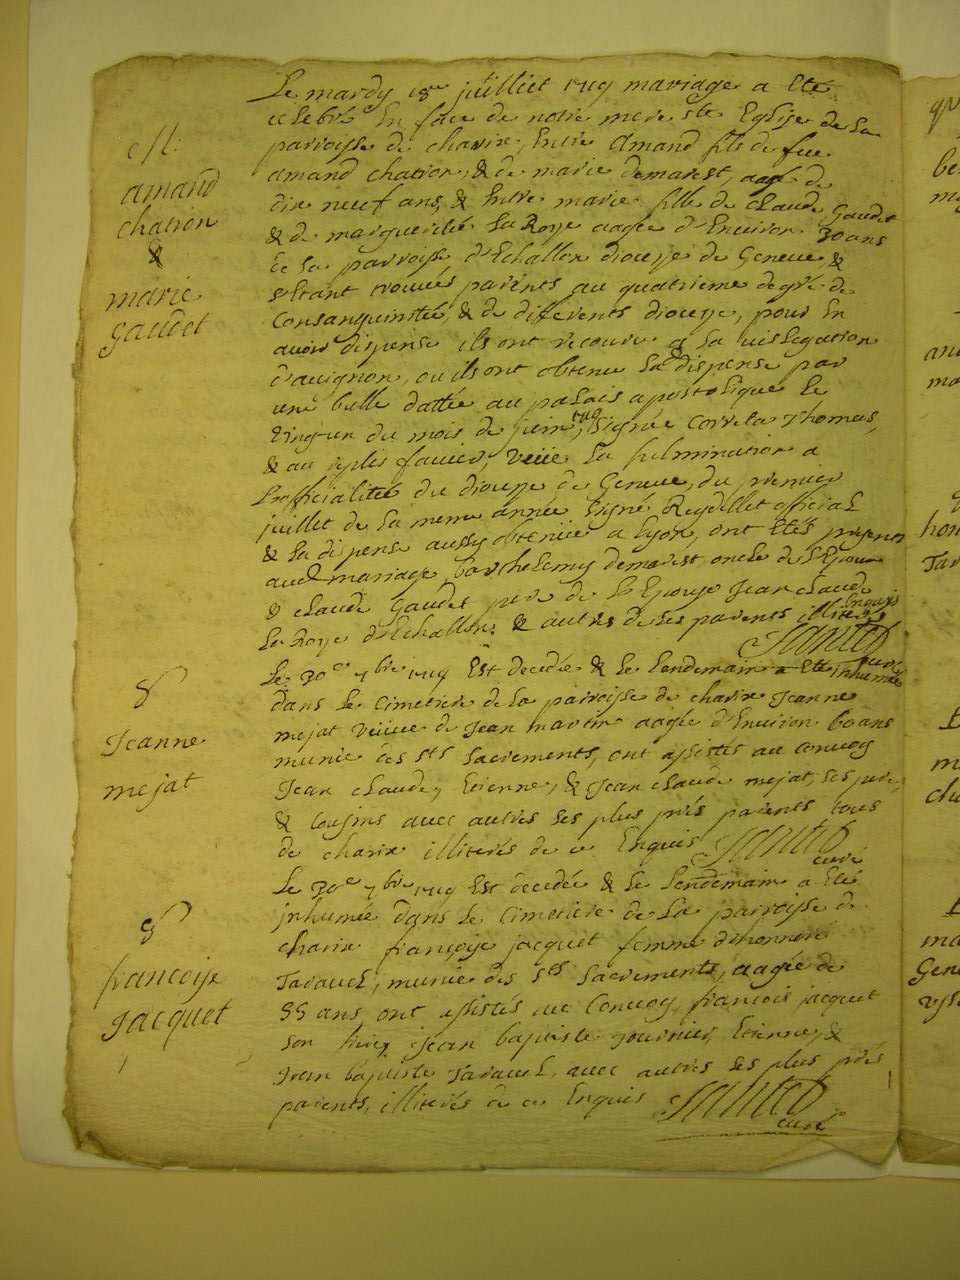 Le mardy 18e juilliet 1719 mariage a ete
celebré En face de notre mere ste Eglise de La
parroisse de charix, Entre Amand fils de feu
amand chatron, & de marie demarest, aagé de
dix neuf ans, & Entre marie fille de claude Gaudet
& de marguerite La Roye aagée d'Environ 30 ans
de la parroisse d'Echallon diocese de Geneve &
s'Etant trouvés parents au quatrieme degré de
Consanguinité, & de diferents diocese, pour En
avoir dispense ils ont recouru a la vislegation
d'avignon, ou ils ont obtenu La dispense par
une bulle dattée au palais apostolique le
vingt un du mois de juin 1719, signée
Thomas,
& au
La fulmination a
L'officialité du diocese de Geneve, du premier
juillet de la meme année signé Reydellet official
& la dispense aussy obtenüe a Lyon, ont Etés presents
aud. mariage, barthelemy demarest oncle de l'Epoux
& claude Gaudet pere de l'Epouse Jean claude
La Roye d'Echallon, & autres de ses parents illiterés
Enquis
Le 30e 7bre 1719 Est decedée & le Lendemain a Eté inhumée
dans le cimetiere de La parroisse de charix Jeanne
mejat veuve de Jean martin aagée d'Environ 60 ans
munie des sts sacrements, ont assistés au convoy
Jean claude, Etienne, & Jean claude mejat, ses
& cousins avec autres ses plus prés parents tous
de charix illiterés de ce Enquis
curé
Le 30e 7bre 1719 Est decedée & le Lendemain a Eté
inhumée dans le cimetiere de La parroisse de
charix françoise jacquet femme d'honnoré
Taravel, munie des sts sacrements, aagée de
55 ans ont assistés au Convoy, françois jacquet
son frere, Jean baptiste
Etienne, &
Jean baptiste Taravel, avec autres ses plus prés
parents, illiterés de ce Enquis
curé
amand
chatron
&
marie
gaudet
Jeanne
mejat
françoise
Jacquet